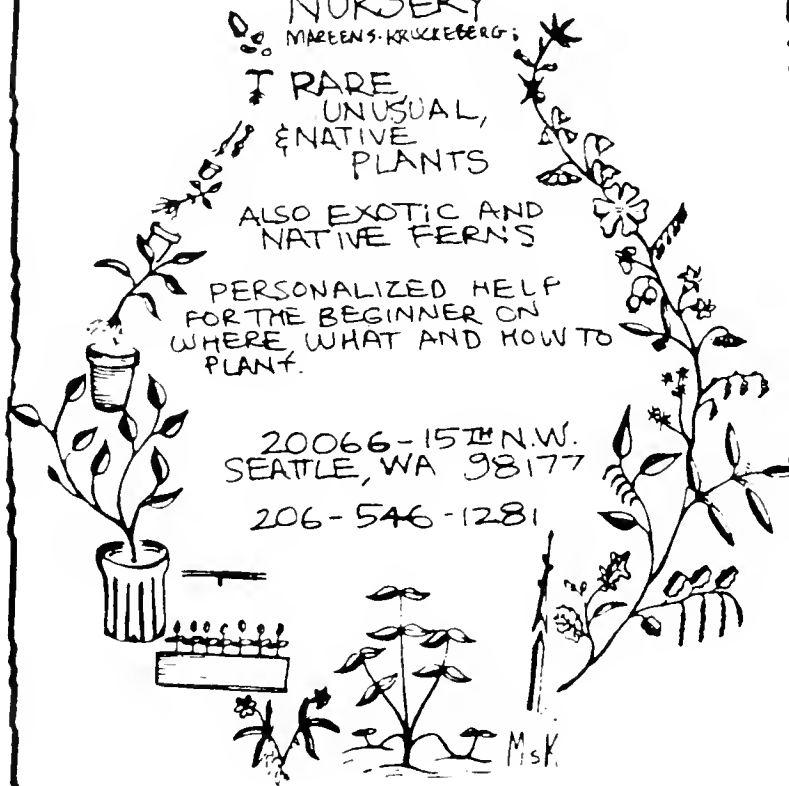 NURSERY
MAREEN S. KRUCKEBERG:
RARE
UNUSUAL,
& NATIVE
PLANTS
ALSO EXOTIC AND
NATIVE FERNS
PERSONALIZED HELP
FOR THE BEGINNER ON
WHERE WHAT AND HOW TO
PLANT.
20066-15TH N.W.
SEATTLE, WA 98177
206-546-1281
MsK